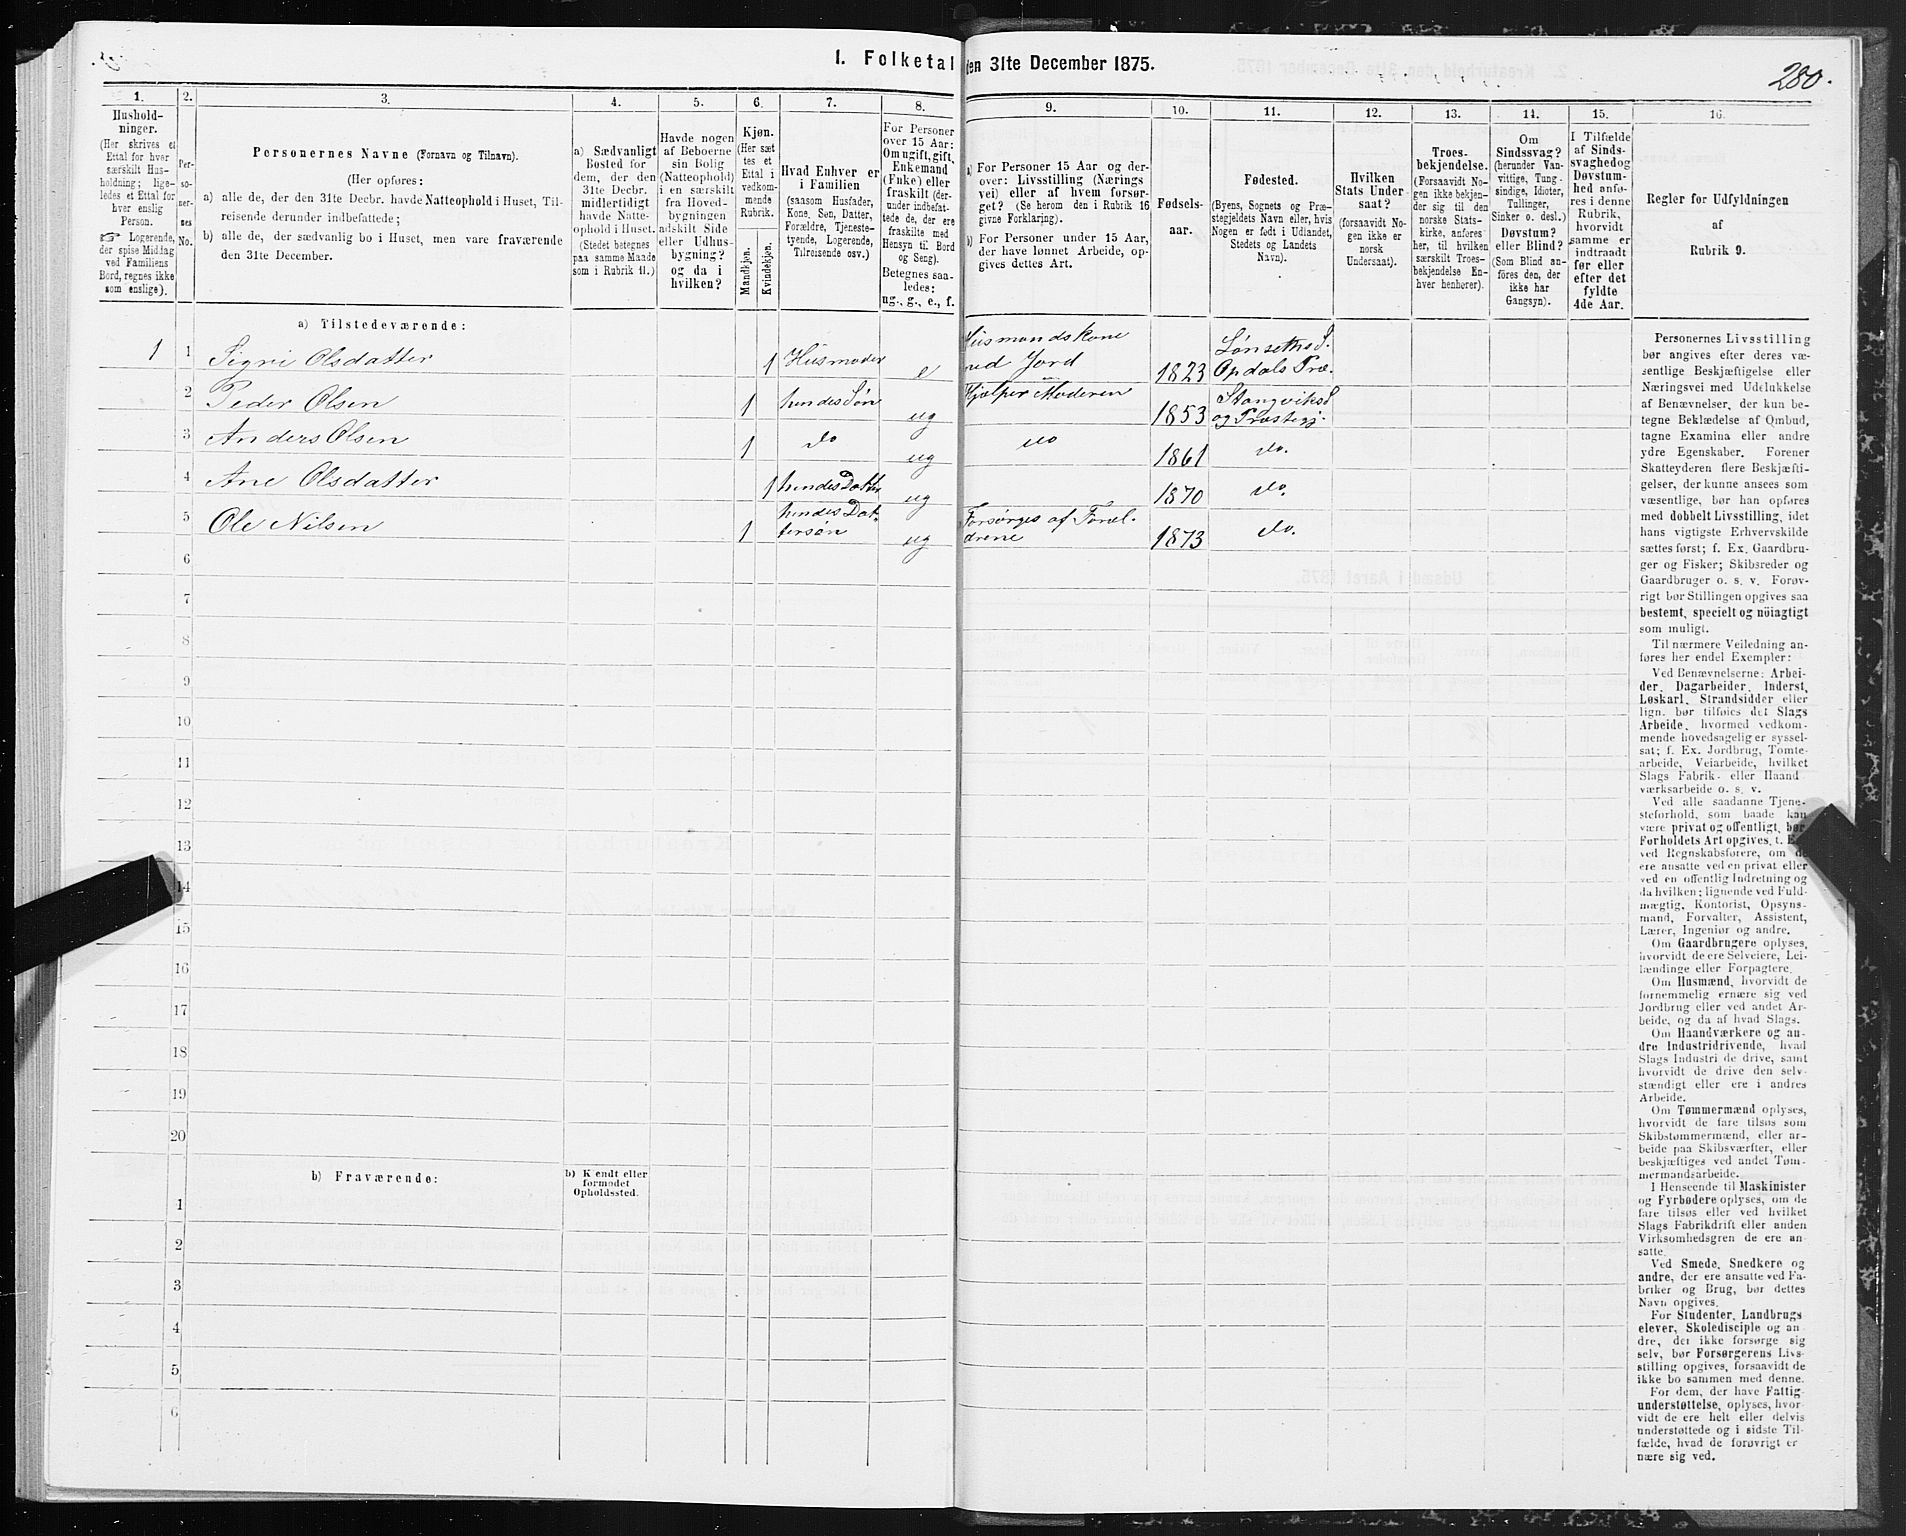 1. Folketal den 31te December 1875.
280.
1.
Hushold-
ninger.
(Her skrives et
Ettal for hver
særskilt Hus-
holdning; lige-
ledes et Ettal for
hver enslig
Person.
Logerende,
der spise Middag
ved Familiens
Bord, regnes ikke
som enslige).
2.
Per-
so-
ner-
nes
No.
3.
Personernes Navne (Fornavn og Tilnavn).
(Her opføres:
a) alle de, der den 31te Decbr. havde Natteophold i Huset, Til-
reisende derunder indbefattede;
b) alle de, der sædvanlig bo i Huset, men vare fraværende
den 31te December.
4.
a) Sædvanligt
Bosted for
dem, der den
31te Decbr.
midlertidigt
havde Natte-
ophold i Huset.
(Stedet betegnes
paa samme Maade
som i Rubrik 11.)
5.
Havde nogen
af Beboerne
sin Bolig
(Natteophold)
i en særskilt
fra Hoved-
bygningen
adskilt Side
eller Udhus-
bygning?
og da i
hvilken?
6.
Kjøn.
(Her sæt
tes et
Ettal i
vedkom-
mende
Rubrik.
Mandkjøn.
Kvindekjøn.
7.
Hvad Enhver er
i Familien
(saasom Husfader,
Kone, Søn, Datter,
Forældre, Tjeneste-
tyende, Logerende,
Tilreisende osv.)
8.
For Personer
over 15 Aar:
Om ugift, gift,
Enkemand
(Enke) eller
fraskilt (der-
under indbefat-
tede de, der ere
fraskilte med
Hensyn til Bord
og Seng).
Betegnes saa-
ledes:
ug., g., e., f.
9.
a) For Personer 15 Aar og der-
over: Livsstilling (Nærings
vei) eller af hvem forsør-
get? (Se herom den i Rubrik 16
givne Forklaring).
b) For Personer under 15 Aar,
der have lønnet Arbeide, op-
gives dettes Art.
10.
Fødsels-
aar.
11.
Fødested.
(Byens, Sognets og Præ-
stegjeldets Navn eller, hvis
Nogen er født i Udlandet,
Stedets og Landets
Navn).
12.
Hvilken
Stats Under
saat?
(forsaavidt No-
gen ikke er
norsk
Undersaat).
13.
Troes-
bekjendelse.
(Forsaavidt No-
gen ikke bekjen-
der sig til den
norske Stats-
kirke, anføres
her, til hvilken
særskilt Troes-
bekjendelse En-
hver henhører).
14.
Om
Sindssvag?
(herunder Van-
vittige, Tung-
sindige, Idioter,
Tullinger,
Sinker o. desl.)
Døvstum?
eller Blind?
(Som Blind an-
føres den, der
ikke har
Gangsyn).
15.
I Tilfælde
af Sinds-
svaghed og
Døvstum-
hed anfø-
res i denne
Rubrik,
hvorvidt
samme er
indtraadt
før eller
efter det
fyldte
4de Aar.
16.
Regler for Udfyldningen
af
Rubrik 9.
a) Tilstedeværende:
1 1 Sigri Olsdatter 1 Husmoder e Husmandskone med Jord 1823 Lønseths S. Opdals Præ.
2 Peder Olsen 1 hendes Søn ug Hjælper Moderen 1853 Stangviks S og Præstegj.
3 Anders Olsen 1 do ug do 1861 do.
4 Ane Olsdatter 1 hendes Datter ug 1870 do.
5 Ole Nilsen 1 hendes Dattersøn ug Forsørges af Forældrene 1873 do.
6
7
8
9
10
11
12
13
14
15
16
17
18
19
20
b) Fraværende:
b) Kjendt eller
formodet
Opholdssted.
1
2
3
4
5
6
Personernes Livsstilling
bør angives efter deres væ-
sentlige Beskjæftigelse eller
Næringsvei med Udelukkelse
af Benævnelser, der kun be-
tegne Beklædelse af Ombud,
tagne Examina eller andre
ydre Egenskaber. Forener
Skatteyderen flere Beskjæfti-
gelser, der kunne ansees som
væsentlige, bør han opføres
med dobbelt Livsstilling, idet
hans vigtigste Erhvervskilde
sættes først; f. Ex. Gaardbru-
ger og Fisker; Skibsreder og
Gaardbruger o. s. v. Forøv-
rigt bør Stillingen opgives saa
bestemt, specielt og nöiagtigt
som muligt.
Til nærmere Veiledning an-
føres her endel Exempler:
Ved Benævnelserne: Arbei-
der, Dagarbeider, Inderst,
Løskarl, Strandsidder eller
lign. bør tilføies det Slags
Arbeide, hvormed vedkom-
mende hovedsagelig er syssel-
sat; f. Ex. Jordbrug, Tomte-
arbeide, Veiarbeide, hvilket
Slags Fabrik- eller Haand
værksarbeide o. s. v.
Ved alle saadanne Tjene-
steforhold, som baade kan
være privat og offentligt, bør
Forholdets Art opgives, t. E
ved Regnskabsførere, om de
ere ansatte ved en privat eller
ved en offentlig Indretning og
da hvilken; lignende ved Fuld-
mægtig, Kontorist, Opsyns-
mand, Forvalter, Assistent,
Lærer, Ingeniør og andre.
Om Gaardbrugere oplyses,
hvorvidt de ere Selveiere, Lei-
lændinge eller Forpagtere.
Om Husmænd, hvorvidt de
fornemmelig ernære sig ved
Jordbrug eller ved andet Ar-
beide, og da af hvad Slags.
Om Haandværkere og an-
dre Industridrivende, hvad
Slags Industri de drive, samt
hvorvidt de drive den selv-
stændigt eller ere i andres
Arbeide.
Om Tømmermænd oplyses,
hvorvidt de fare tilsøs som
Skibstømmermænd, eller ar-
beide paa Skibsværfter, eller
beskjæftiges ved andet Tøm-
mermandsarbeide.
I Henseende til Maskinister
og Fyrbødere oplyses, om de
fare tilsøs eller ved hvilket
Slags Fabrikdrift eller anden
Virksomhedsgren de ere an-
satte.
Ved Smede, Snedkere og
andre, der ere ansatte ved Fa-
briker og Brug, bør dettes
Navn opgives.
For Studenter, Landbrugs
elever, Skoledisciple og an-
dre, der ikke forsørge sig
selv, bør Forsørgerens Livs-
stilling opgives, forsaavidt de
ikke bo sammen med denne.
For dem, der have Fattig
understøttelse, oplyses, hvor-
vidt de ere helt eller delvis
understøttede og i sidste Til-
fælde, hvad de forøvrigt er
nære sig ved.